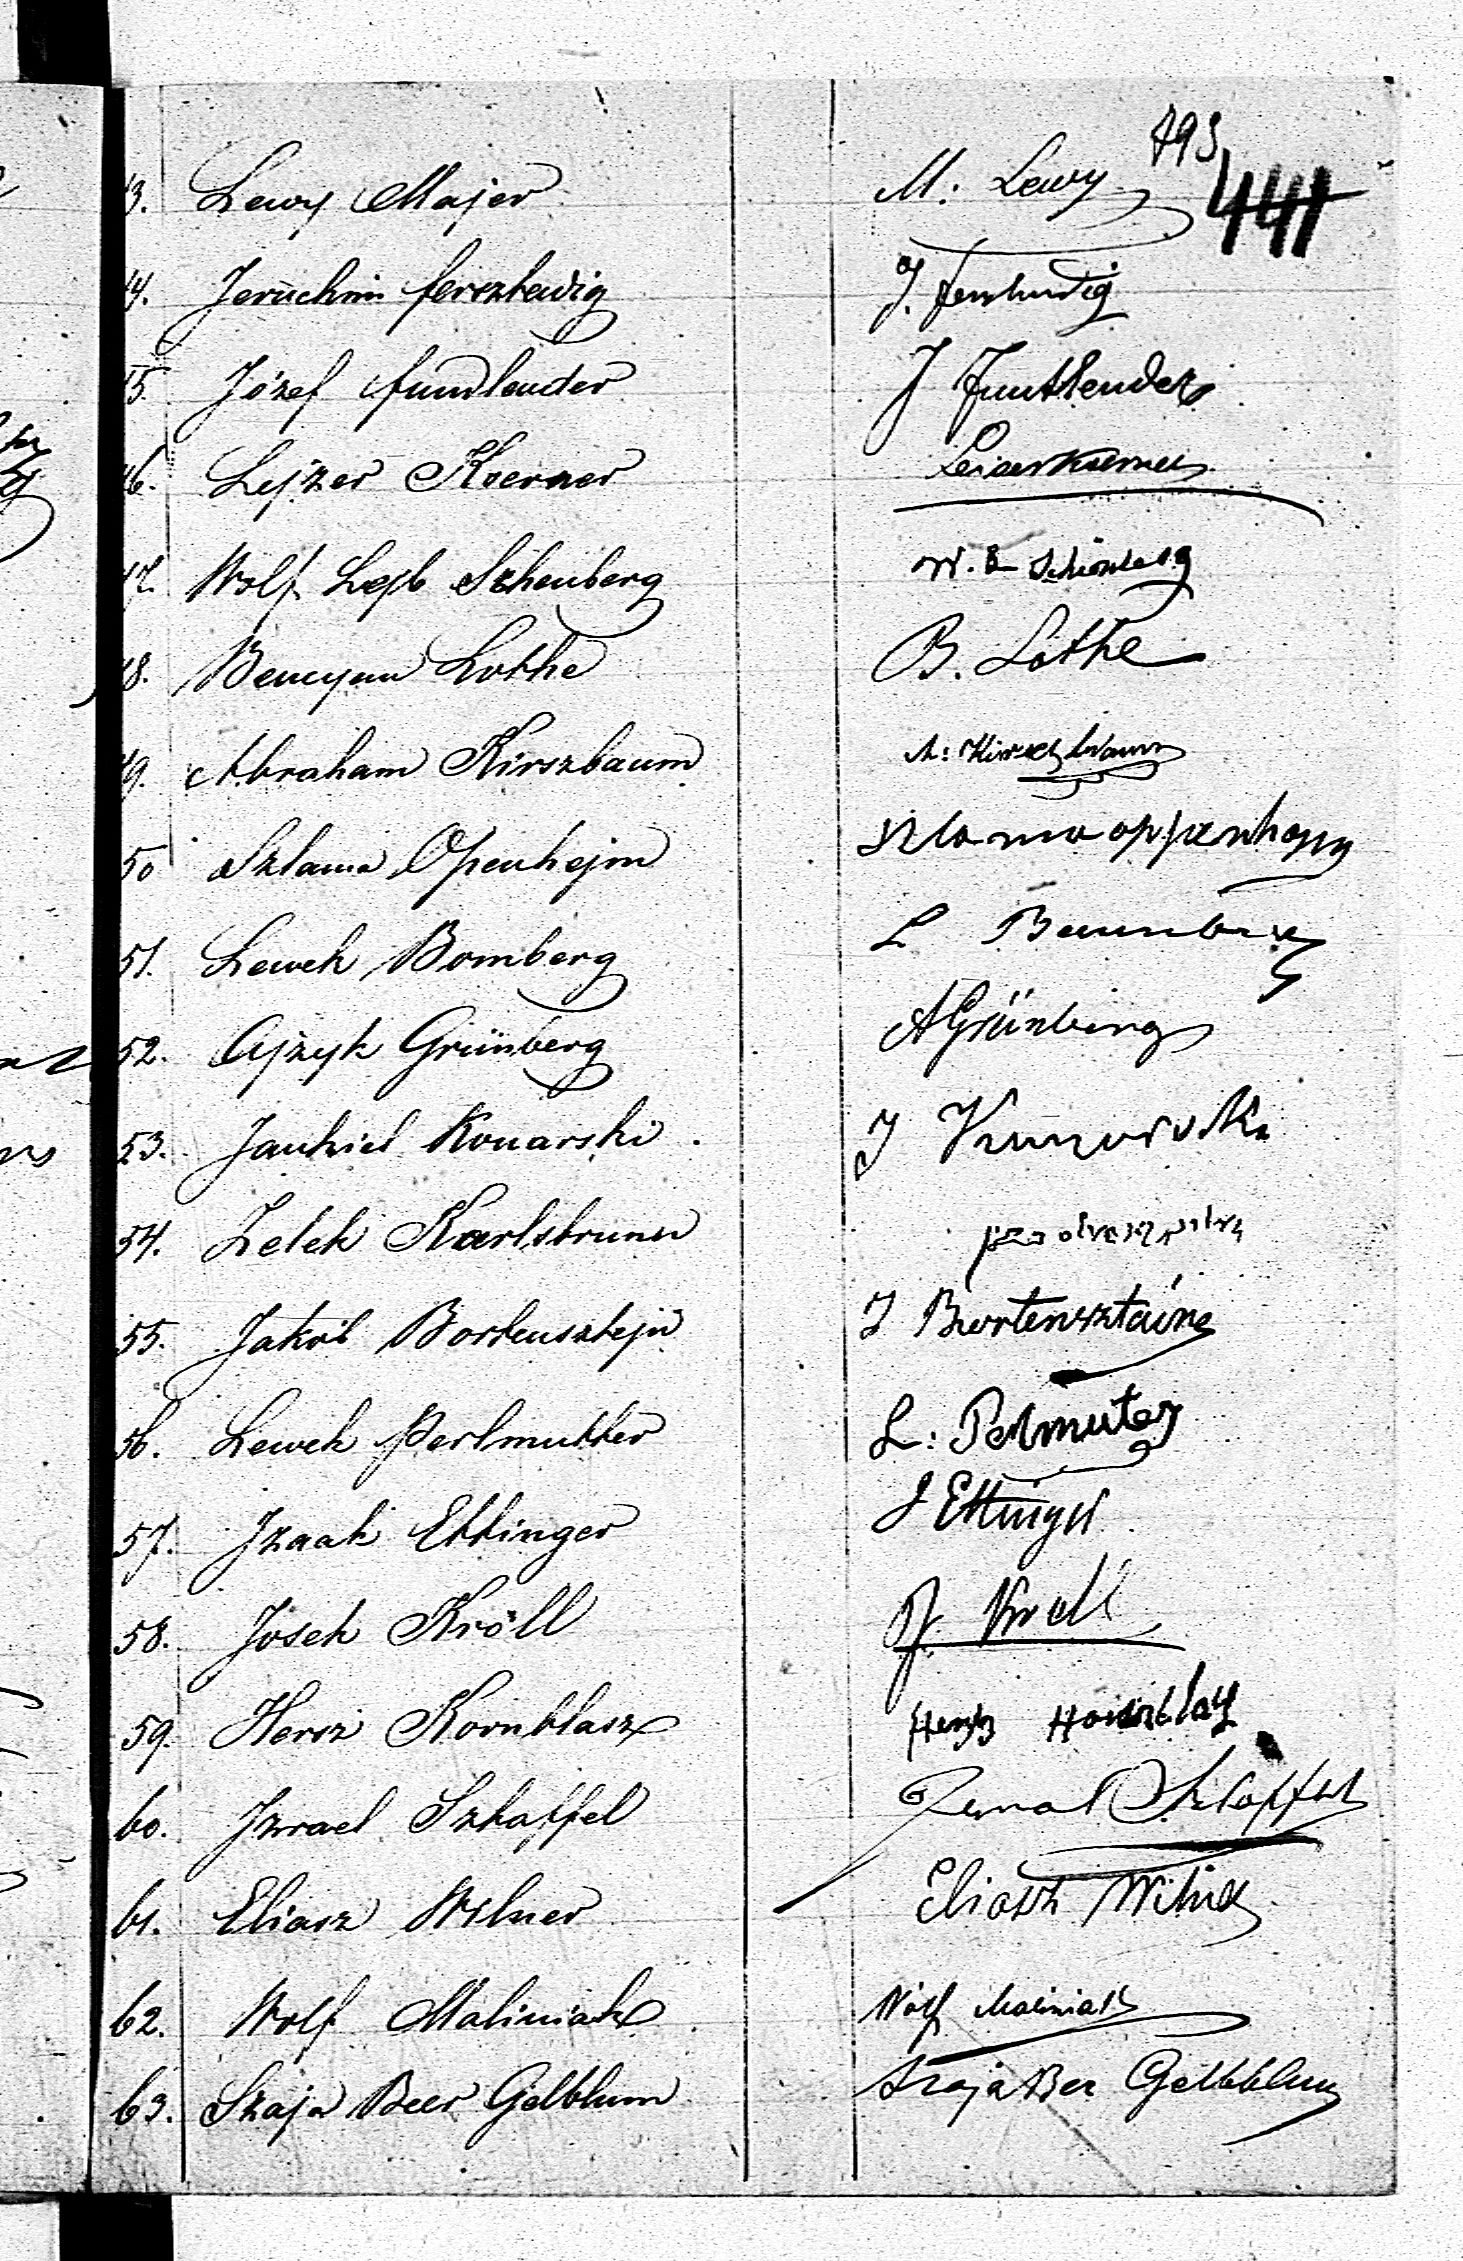 493
441
43. Lewy Majer M. Lewy
44. Jeruchim ferszledig J.
45. Józef fundlender J Funtlender
46. Lejzer Koerner Leiser Kerner
47. Wolf Lejb Schenberg W. L Schönberg
48. Bencyan Lothe B. Lothe
49. Abraham Kirszbaum A. Kirschbaum
50 Szlama Openhejm Szlama oppenhajm
51. Lewek Bomberg L Baumberg
52. Ajzyk Grünberg A Grünberg
53. Jankiel Konarski J Kunarski
54. Lelek Karlsbruner
55. Jakób Bortensztejn J Bortensztain
56. Lewek Perlmutter L. Pelmuter
57. Izaak Ettinger J Ettinger
58. Josek Kröll J. Kroll
59. Hersz Kornblasz Hersz
60. Izrael Sztaffel
61. Eliasz Wilner Eliasz Wilner
62. Wolf Maliniak Wolf Maliniak
63. Szaja Beer Gelblum Szaja Ber Gelbblum